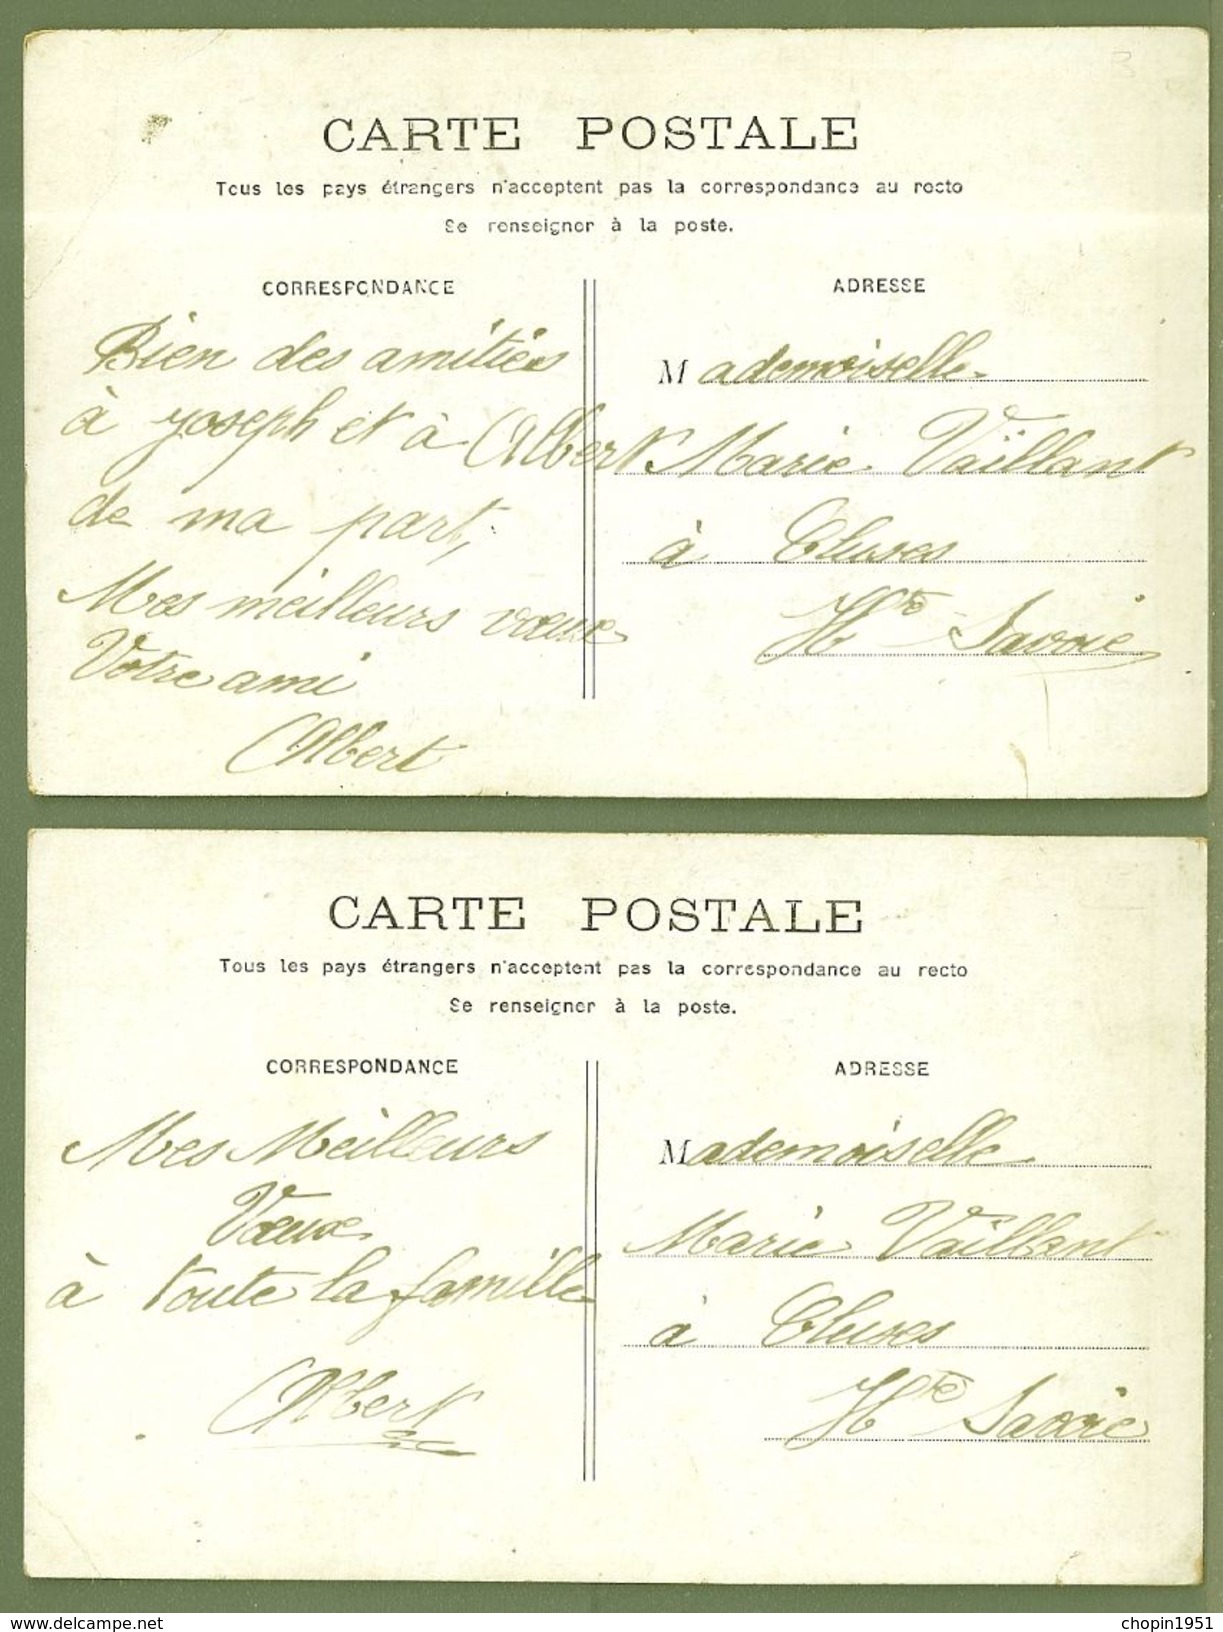 CARTE POSTALE
Tous les pays étrangers n'acceptent pas la correspondance au recto
Se renseigner à la poste.
CORRESPONDANCE
Bien des amitiés
à Joseph et à Albert
de ma part,
Mes meilleurs vœux
Votre ami
Albert
ADRESSE
Mademoiselle
Marie Vaïllant
à Cluses
Hte Savoie
CARTE POSTALE
Tous les pays étrangers n'acceptent pas la correspondance au recto
Se renseigner à la poste.
CORRESPONDANCE
Mes Meilleurs
Vœux
à toute la famille
Albert
ADRESSE
Mademoiselle
Marie Vaillant
à Cluses
Hte Savoie
www.delcampe.net
chopin1951